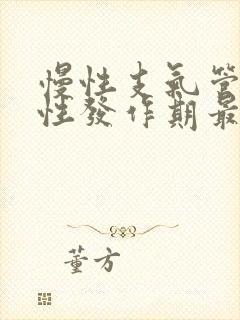 慢性支氣管
性發作期最
董方